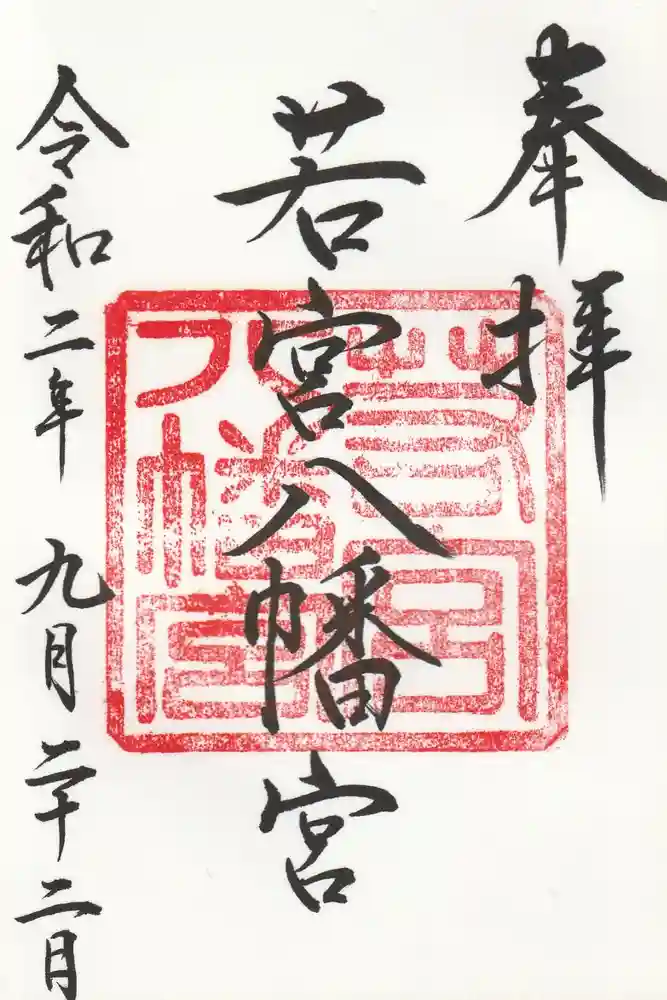 奉拝
若宮八幡宮
若宮八幡宮
令和二年九月二十二月